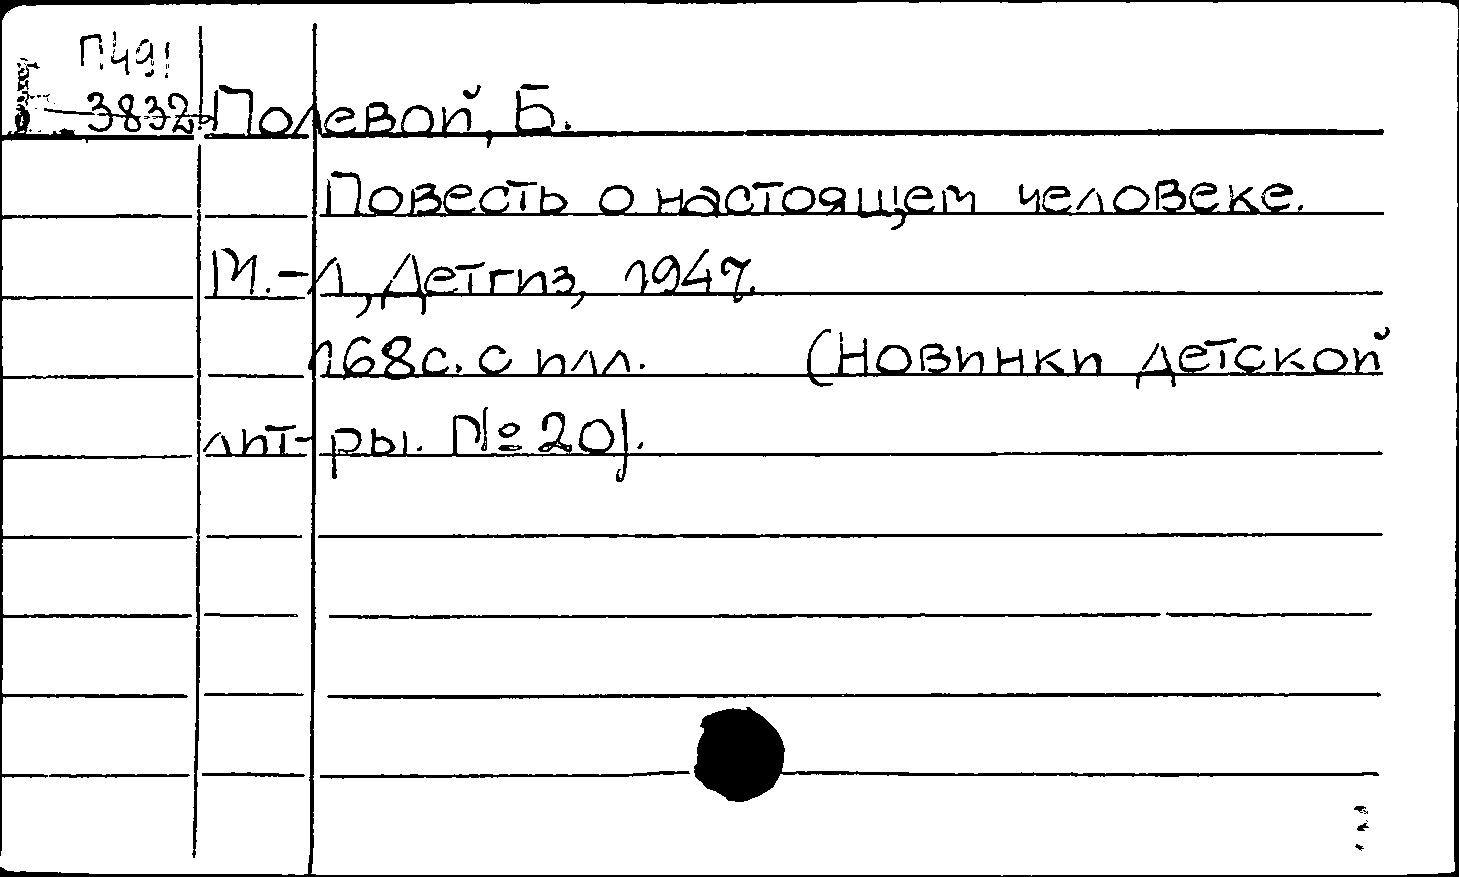 П491
3832
Полевой, Б.
Повесть о настоящем человеке.
М.-Л, Детгиз, 1947.
168с. с илл. (Новинки детской
лит-ры. № 20).